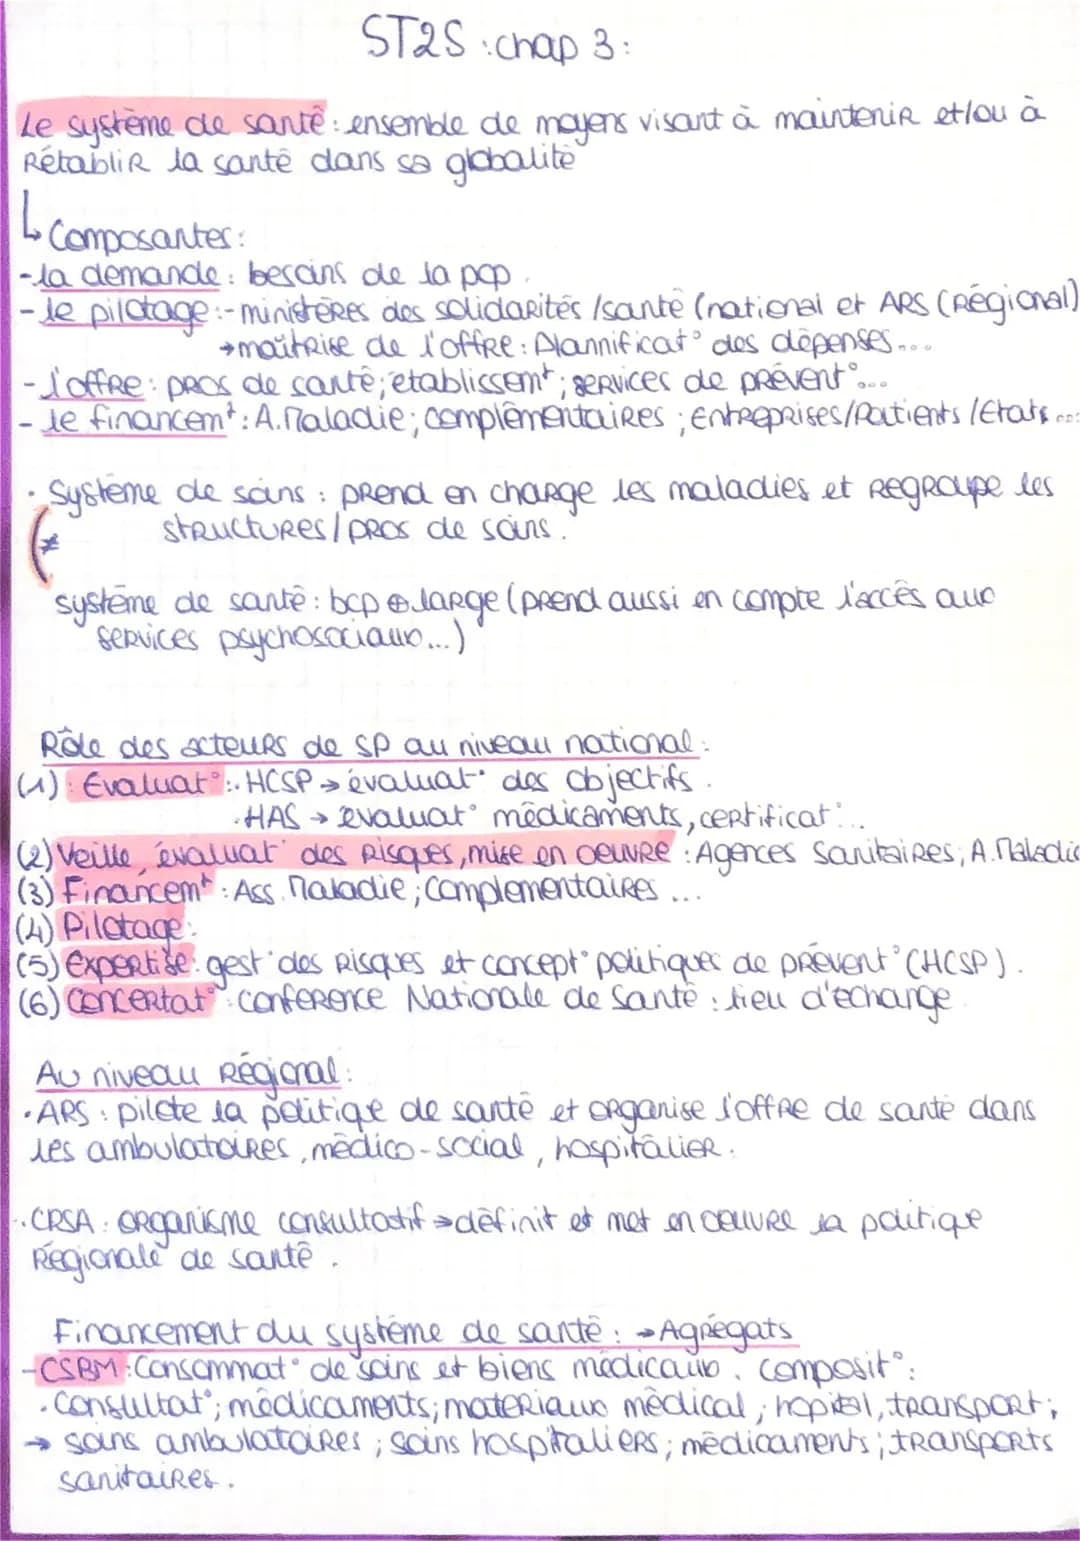 ST2S : chap 3 :
Le système de santé : ensemble de moyens visant à maintenir et/ou à
Rétablir la santé dans sa globalité
↳ Composantes :
- la demande : besoins de la pop.
- le pilotage : - ministères des solidarités /santé (national et ARS (Régional)
→ maîtrise de l'offre : Plannificat° des dépenses...
- l'offre : pros de santé ; etablissemt ; services de prévent°...
- le financemt : A. Maladie ; complémentaires ; Entreprises/Patients /Etats ...
· Système de soins : prend en charge les maladies et Regroupe les
structures / pros de soins.
≠
système de santé : bcp ⊕ large (prend aussi en compte l'accès aux
services psychosociaux ...)
Rôle des acteurs de SP au niveau national :
(1) : Evaluat° : · HCSP → évaluat° des objectifs.
· HAS → évaluat° médicaments, certificat° ...
(2) Veille, évaluat° des Risques, mise en oeuvre : Agences Sanitaires ; A. Maladie
(3) Financemt : Ass. Maladie ; Complementaires ...
(4) Pilotage :
(5) Expertise : gest° des Risques et concept° politiques de prévent° (HCSP).
(6) Concertat° : Conférence Nationale de Santé : lieu d'échange
Au niveau Régional :
· ARS : pilote la politique de santé et organise l'offre de santé dans
les ambulatoires, médico-social, hospitalier.
· CRSA : organisme consultatif → définit et met en oeuvre la politique
Régionale de santé.
Financement du système de santé : → Agrégats
- CSBM : Consommat° de soins et biens médicaux. composit° :
· Consultat° ; médicaments ; materiaux médical ; hopital, transport ;
→ soins ambulatoires ; soins hospitaliers ; médicaments ; transports
sanitaires.